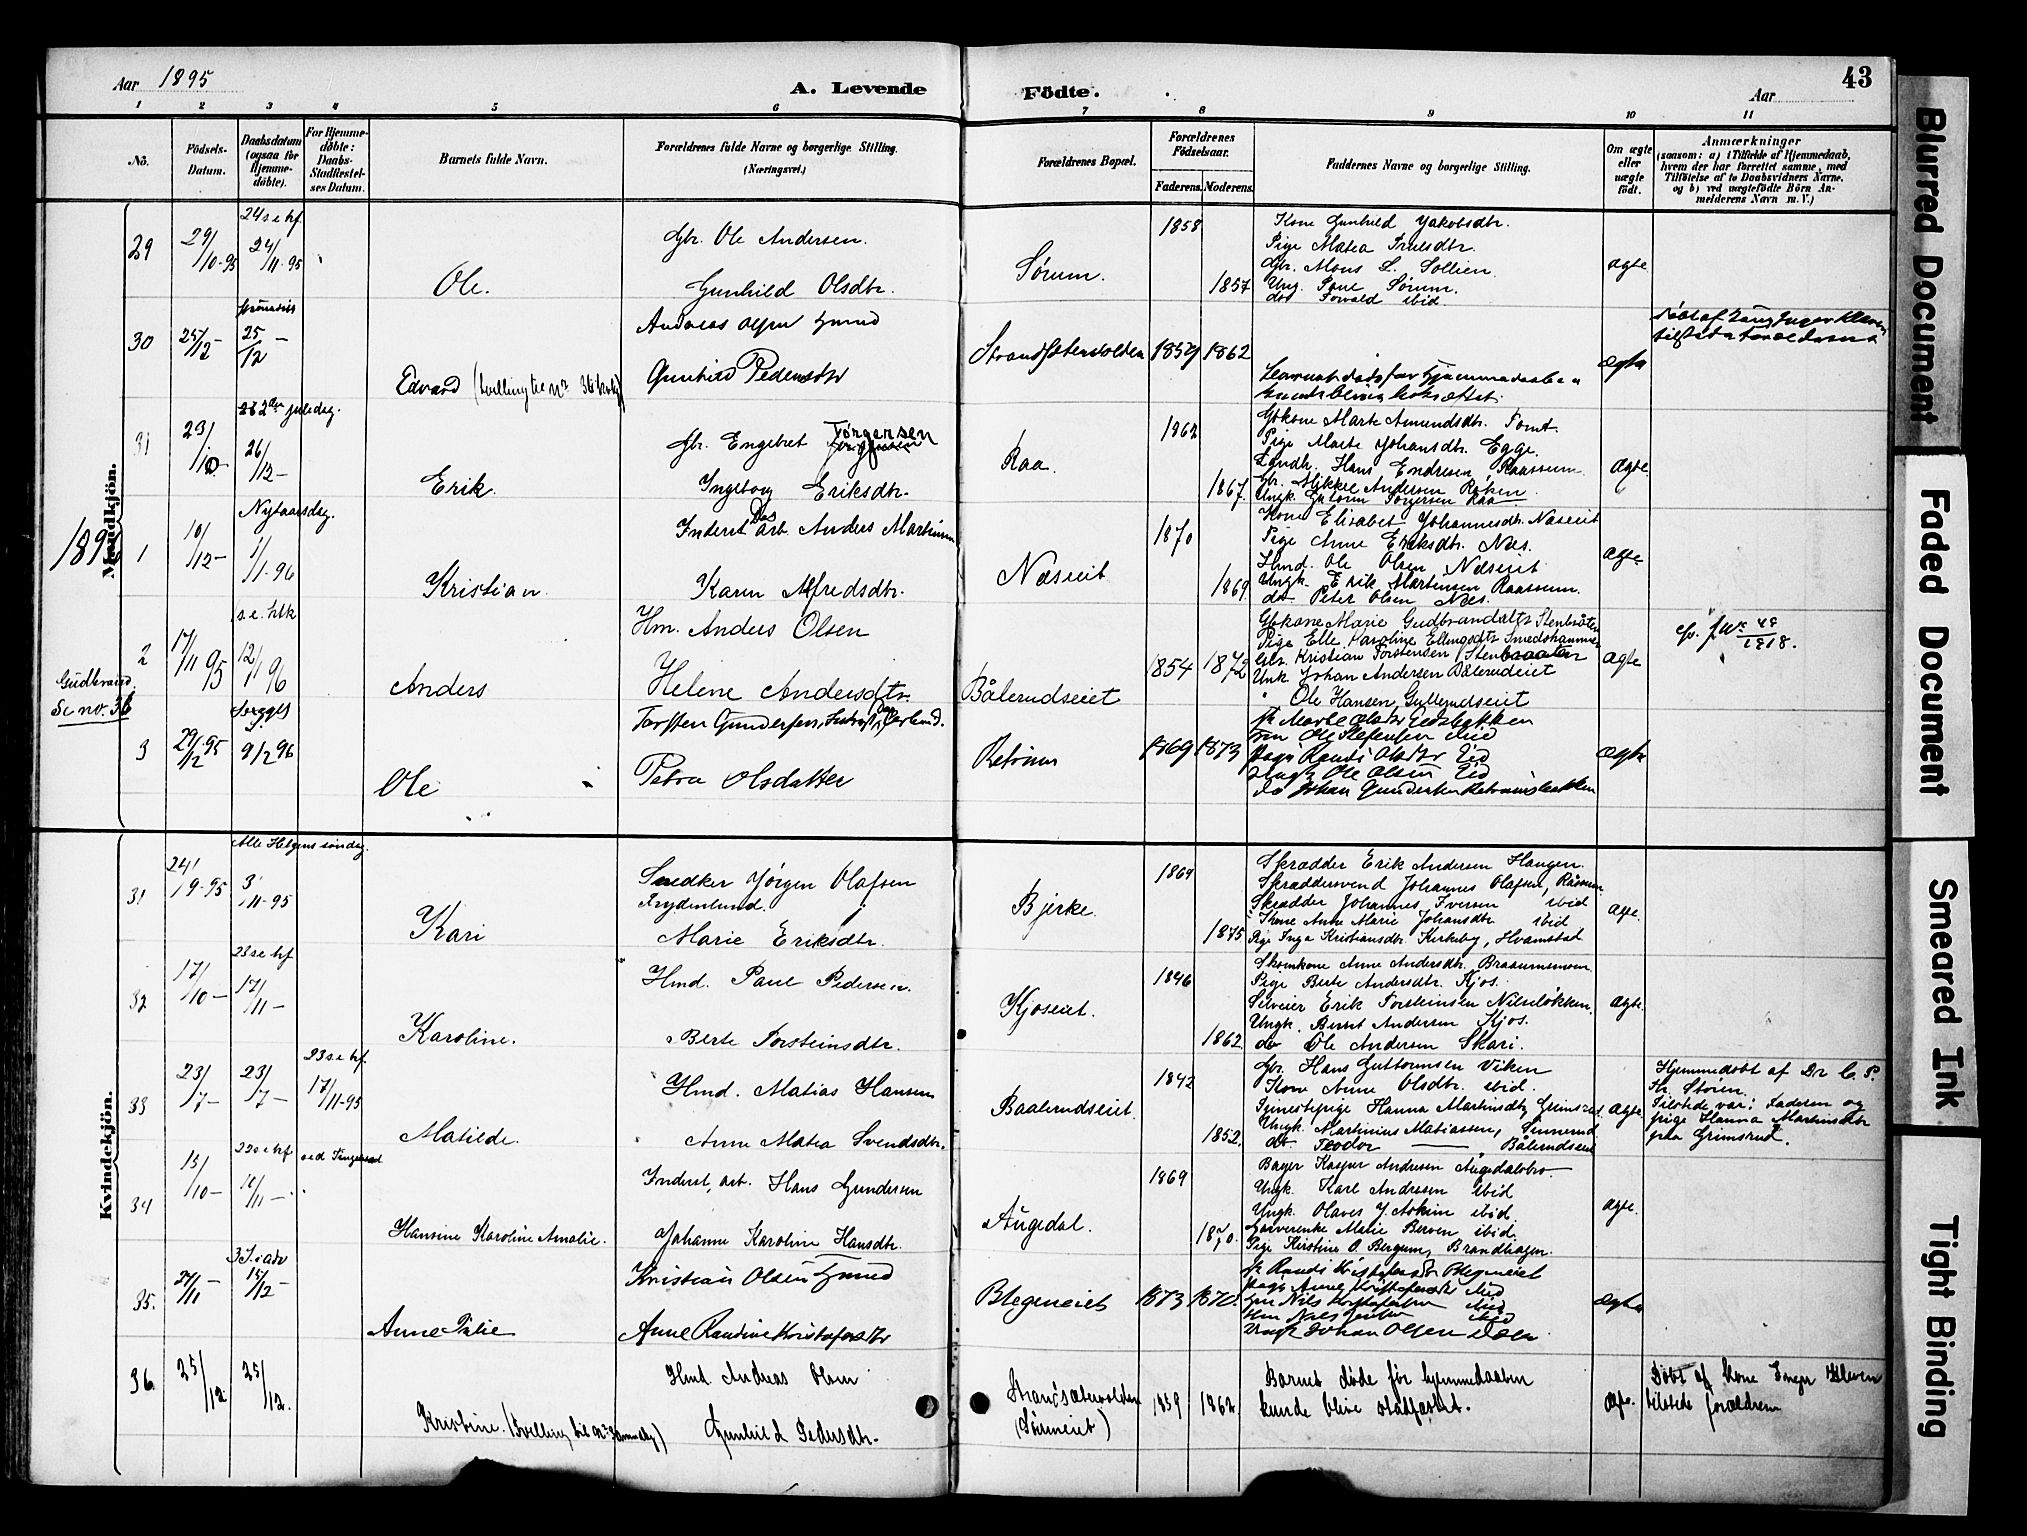 Aar 1895
A. Levende
Födte.
Aar
43
1 2 3 4 5 6 7 8 9 10 11
No.
Födsels-Datum.
Daabsdatum (ogsaa for Hjemme-döbte).
For Hjemme-döbte: Daabs-Stadfæstel-ses Datum.
Barnets fulde Navn.
Forældrenes fulde Navne og borgerlige Stilling.
(Næringsvei.)
Forældrenes Bopæl.
Forældrenes Födselsaar.
Faderens. Moderens.
Faddernes Navne og borgerlige Stilling.
Om ægte eller uægte födt.
Anmærkninger
(saasom: a) i Tilfælde af Hjemmedaab, hvem der har forrettet samme, med Tilföielse af to Daabsvidners Navne, og b) ved uægtefödte Börn An-melderens Navn m. V.)
Mandkjön.
24 s e trf.
29 29/10-95 24/11-95
Ole.
Gbr. Ole Andersen.
Gunhild Olsdtr.
Sørum.
1858
1857
Kone Gunhild Jakobsdtr.
Pige Matea Trulsdtr.
Gbr. Mons L. Sollien.
Ung. Tone Sørum.
do Torvald ibid.
ægte
30 25/12 - 25/12 -
Edvard (tvilling til No 36 kvkj)
Andreas Olsen Hmd
Gunhild Pedersdtr
Strandsætervolden
1859 1862
ægte
2den juledag.
31 23/10- 26/12-
Erik.
Gbr. Engebret Törgersen
Ingeborg Eriksdtr.
Raa.
1862
1867.
Gbkone Marte Amundsdtr. Tomt.
Pige Marte Johansdtr. Egge.
Landh. Hans Endresen Raassum.
Gbr. Mikkel Andersen Røken
Ungk. Guttorm Törgersen Raa
ægte
Nytaarsdag.
189
1 10/12- 1/1-96
Kristian.
Inderst Dag arb. Anders Martinsen
Karen Alfredsdtr.
Næseiet
1870
1869
Kone Elisabet Johannesdtr. Næseiet
Pige Anne Eriksdtr. Næs.
Hmd. Ole Olsen Næseiet
Ungk. Erik Martinsen Raassum.
do Peter Olsen Næs.
ægte
2 17/11 95 12/1 96
Gudbrand.
Se no. 36
Anders
Hm. Anders Olsen
Helene Andersdtr.
Bålerudseiet
1854 1872
Gbkone Marie Gudbrandsdtr Stenbråten
Pige Elle Karoline Ellingsdtr Smedshammer
Gbr. Kristian Torstensen Stenbraaten
Unk. Johan Andersen Bålerudeiet
" Ole Hansen Gullerudseiet
ægte
1918.
3 29/12 95 9/2 96
Ole
Torsten Gundersen, Inderst,
Petra Olsdatter
Retrum
1869 1873
Pige Randi Olsdtr Eid
Ungk Ole Olsen Eid
do Johan Gundersen Retrumsbakken
ægte
Kvindekjön.
Alle Helgens söndag.
31 24/9-95 3/11-95
Kari
Snedker Jörgen Olafsen
Frydenlund.
Marie Eriksdtr.
Bjerke.
1869
1875
Skrædder Erik Andersen Haugen.
Skræddersvend Johannes Olafsen, Råssum
Skrædder Johannes Iversen ibid
Kone Anne Marie Johansdtr ibid
Pige Inga Kristiansdtr. Kirkeby, Hvamstad
ægte.
23 s e trf
32 17/10- 17/11-
Karoline.
Hmd. Paul Pedersen.
Berte Torsteinsdtr.
Kjoseiet.
1846
1862.
Pige Berte Andersdtr. Kjos.
Selveier Erik Torsteinsen Nilseløkken
Ungk. Bernt Andersen Kjos.
do Ole Andersen Skari.
ægte.
23 s e trf.
33 23/7- 23/7- 17/11-95
Matilde.
Hmd. Matias Hansen
Anne Matea Svendsdtr.
Baalerudseiet.
1842
1852.
Gbr. Hans Guttormsen Viken
Kone Anne Olsdtr. ibid.
Tjenestepige Hanna Martinsdtr Grimsrud
Ungk. Martinius Matiassen,
do Teodor — Bålerudseiet
ægte.
Hjemmedöbt af Dr C. P.
Hr. Stören.
Tilstede var: Faderen og
pige Hanna Martinsdtr
paa Grimsrud.
22 s e trf
34 13/10- /11-
Hansine Karoline Amalie.
Inderst, arb. Hans Gundersen
Johanne Karoline Hansdtr.
Augedal.
1869
1870.
Bager Kasper Andresen Augedalsbro
Ungk. Karl Andresen ibid
Ungk. Olaves J. Askim ibid.
Garverenke Malie Berven ibid.
Pige Kirstine O. Bergum, Brandhagen.
ægte.
3 S i adv
35. 24/11 - 15/12 -
Anne Julie
Kristian Olsen Hmd
Anne Randine Kristofersdtr
Blegeneiet
1873 1870.
Gk Randi Kristofersdtr Blegeneiet
Pige Anne Kristofersdtr ibid
Hm Nils Kristofersen ibid
Ungk Johan Olsen
ægte
36. 25/12 25/12.
Kristine. (tvilling til No 30 mandkj)
Hmd. Andreas Olsen
Gunhild Pedersdtr.
Strandsætervolden
(Sørumeiet)
1859 1862
Barnet døde før hjemmedaaben
kunde blive stadfæstet.
ægte.
Döbt af Kone Inger Kleven
tilstede forældrene
Blurred Document
Faded Document
Smeared Ink
Tight Binding